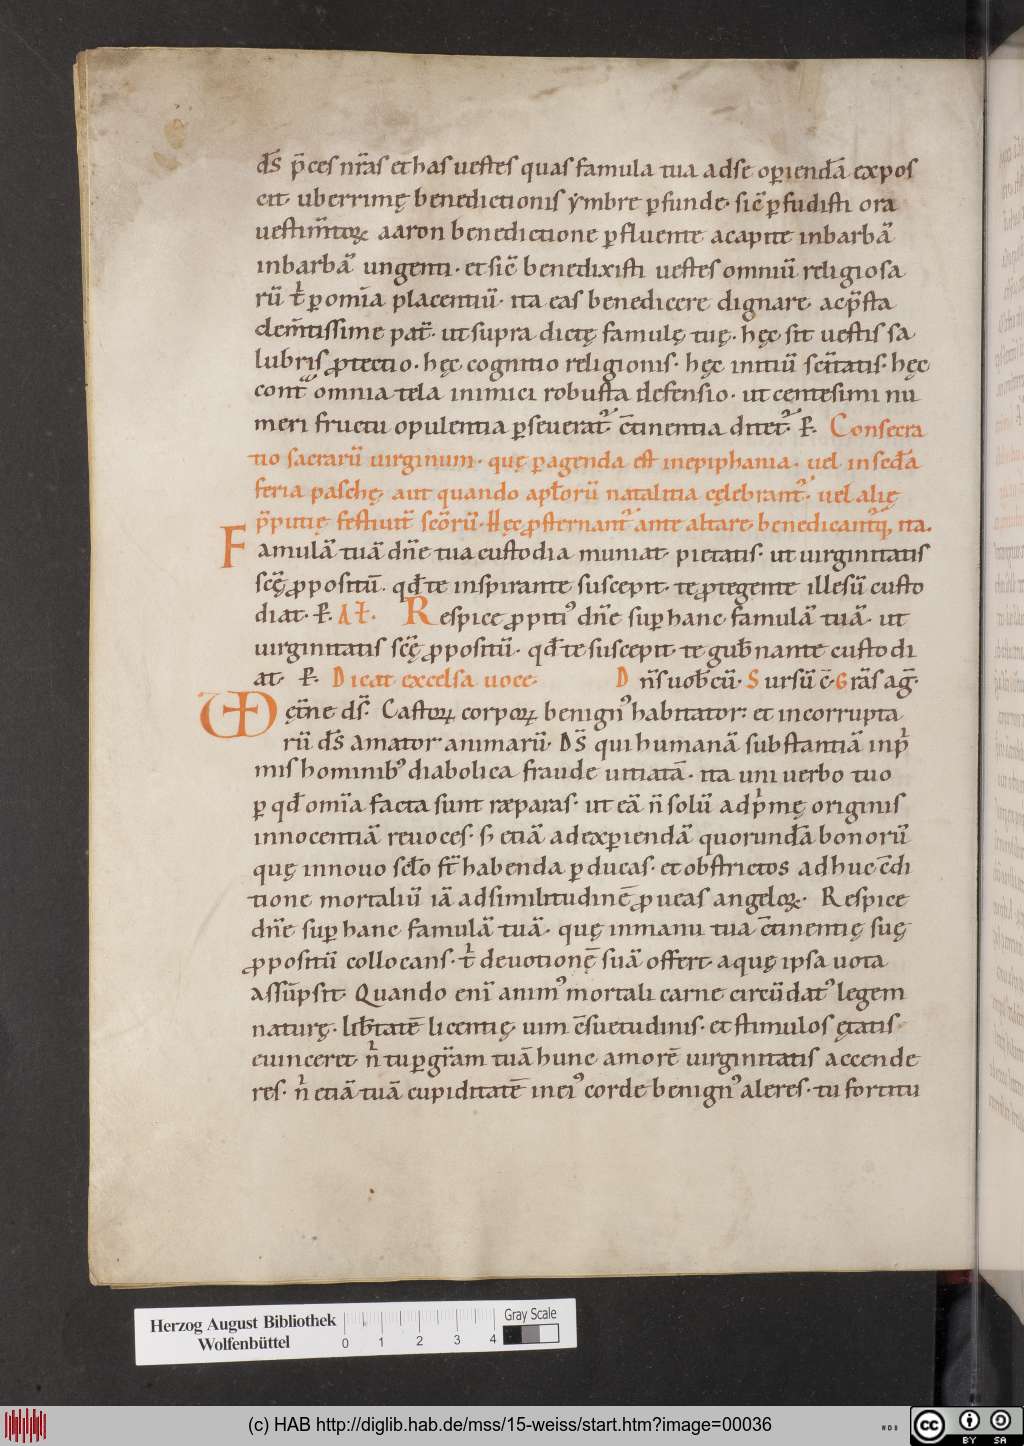 d̄s p̄ces nr̄as et has uestes quas famula tua ad se operiendā expos
cit· uberrimę benedictionis ẏmbre ꝑfunde· sic̄ ꝑfudisti ora
uestim̄toꝝ aaron benedictione ꝑfluente a capite in barbā
in barbā ungenti· et sic̄ benedixisti uestes omniū religiosa
rū t ꝑ omīa placentiū· ita eas benedicere dignare· ac p̄sta
clem̄tissime pat̄· ut supra dictę famulę tuę· hęc sit uestis sa
lubris ꝓtectio· hęc cognitio religionis· hęc initiū sc̄itatis· hęc
cont omnia tela inimici robusta defensio· ut centesimi nu
meri fructu opulentia ꝑseuerat᷑ c̄tinentia ditet᷑ ꝑ. Consecra
tio sacrarū uirginum· quę ꝑagenda est in epiphania· uel in sed̄a
feria paschę· aut quando apl̄orū natalitia cęlebrant᷑· uel alię
p̄cipuę festiuit̄ sc̄orū· Hęc ꝓsternant᷑ ante altare· benedicant᷑q, ita.
Famulā tuā dn̄e tua custodia muniat· pietatis· ut uirginitatis
sc̄ę ꝓpositū· qd̄ te inspirante suscepit· te ꝓtegente illesū custo
diat· ꝑ. Al̄· Respice ꝓpitiꝰ dn̄e suꝑ hanc famulā tuā· ut
uirginitatis sc̄ę ꝓpositū· qd̄ te suscepit· te gub̄nante custodi
at· ꝑ. Dicat excelsa uoce· Dn̄s uob̄cū· Sursū c̄· Gr̄as aḡ·
VD ęt̄ne d̄s· Castoꝝ corpoꝝ benignꝰ habitator: et incorrupta
rū d̄s amator animarū· D̄s qui humanā substantiā in p
mis hominibꝰ diabolica fraude uitiatā· ita uni uerbo tuo
ꝑ qd̄ omīa facta sunt ræparas· ut eā n̄ solū ad pmę originis
innocentiā reuoces· s; etiā ad exꝑiendā quorundā bonorū
quę in nouo scl̄o st̄ habenda ꝑducas· et obstrictos adhuc c̄di
tione mortaliū iā ad similitudinē ꝓueas angeloꝝ· Respice
dn̄e suꝑ hanc famulā tuā· quę in manu tua c̄tinentię suę
ꝓpositū collocans· t deuotionē suā offert· a quę ipsa uota
assūpsit· Quando enī animꝰ mortali carne circūdatꝰ legem
naturę· lib̄tatē licentię· uim c̄suetudinis· et stimulos ętatis·
euinceret· n tu ꝑ gr̄am tuā hunc amorē uirginitatis accende
res· n etiā tuā cupiditatē in eiꝰ corde benignꝰ aleres· tu fortitu
Herzog August Bibliothek
Wolfenbüttel
0 1 2 3 4
Gray Scale
(c) HAB http://diglib.hab.de/mss/15-weiss/start.htm?image=00036
cc BY SA